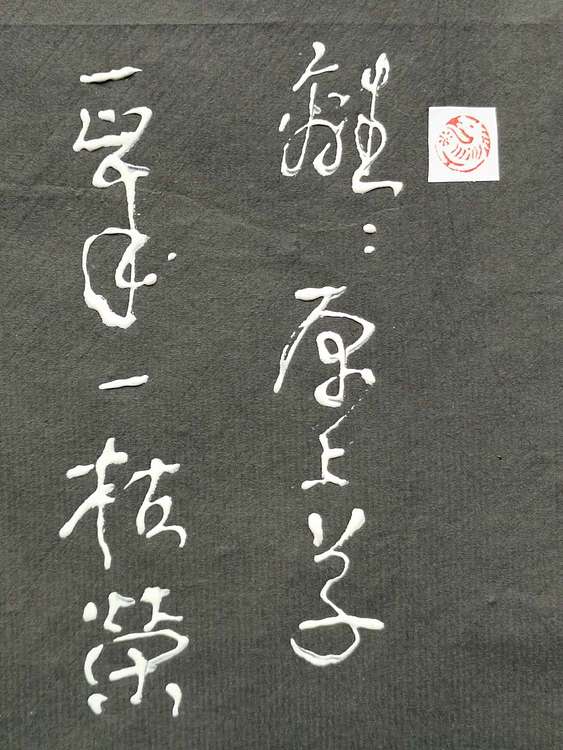 離〻原上草
一歲一枯榮